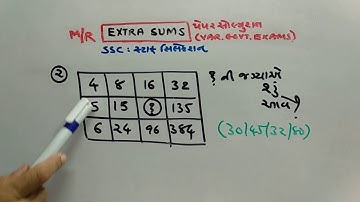 M/R EXTRA SUMS પેપર સોલ્યુશન
(VAR. GOVT. EXAMS)
SSC: સ્ટાફ સિલેકશન
૨
4 8 16 32 ? ની જગ્યાએ
5 15 ? 135 શું
6 24 96 384 આવે ?
(30/45/32/80)